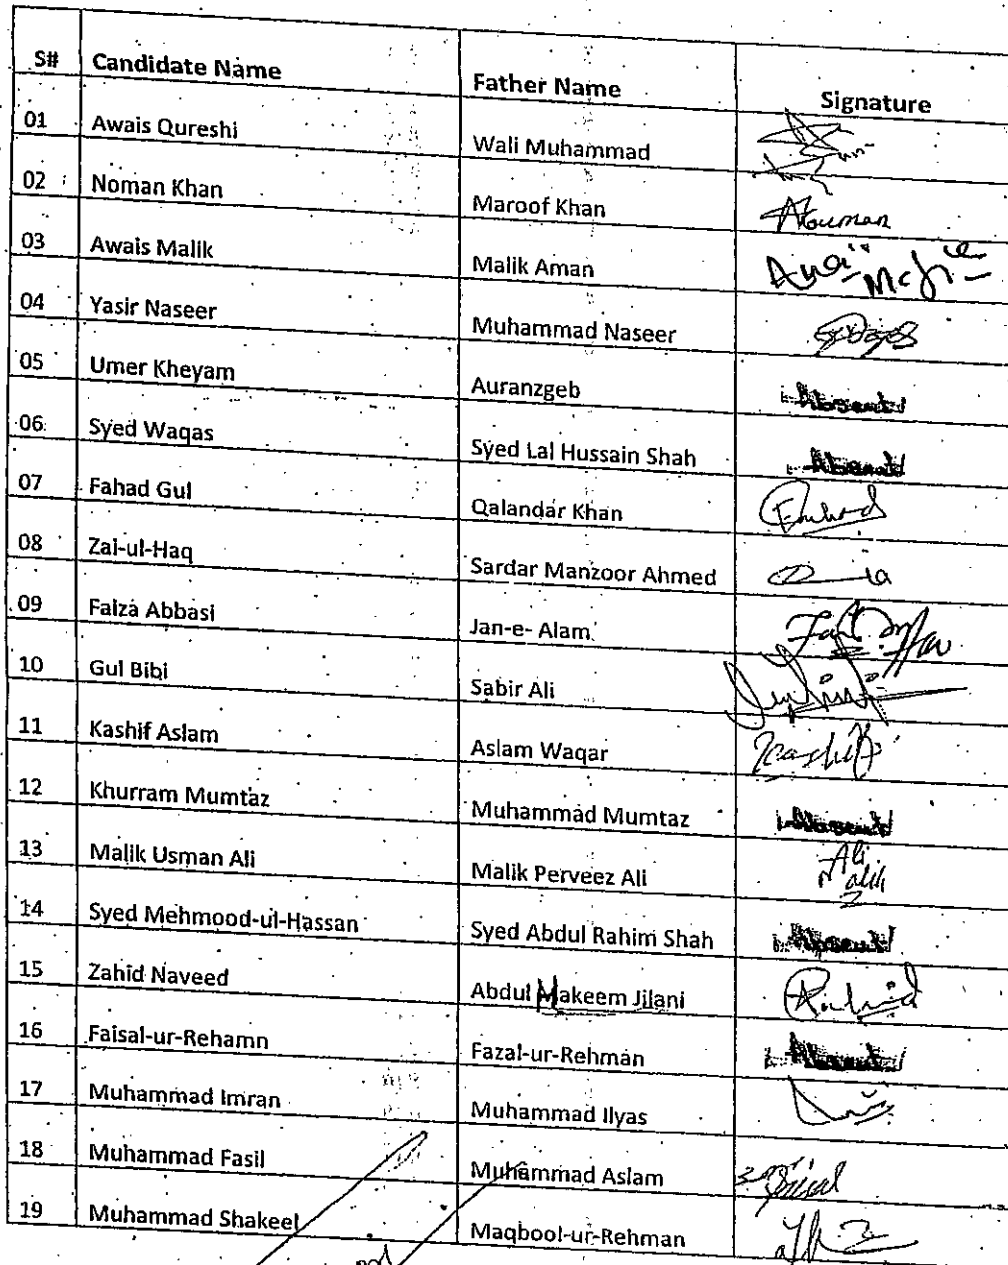 S# Candidate Name Father Name Signature
01 Awais Qureshi Wali Muhammad
02 Noman Khan Maroof Khan Nouman
03 Awais Malik Malik Aman
04 Yasir Naseer Muhammad Naseer
05 Umer Kheyam Auranzgeb Absent
06 Syed Waqas Syed Lal Hussain Shah Absent
07 Fahad Gul Qalandar Khan Fahad
08 Zai-ul-Haq Sardar Manzoor Ahmed Zia
09 Faiza Abbasi Jan-e- Alam
10 Gul Bibi Sabir Ali
11 Kashif Aslam Aslam Waqar Kashif
12 Khurram Mumtaz Muhammad Mumtaz Absent
13 Malik Usman Ali Malik Perveez Ali Ali
14 Syed Mehmood-ul-Hassan Syed Abdul Rahim Shah Absent
15 Zahid Naveed Abdul Hakeem Jilani
16 Faisal-ur-Rehamn Fazal-ur-Rehman Absent
17 Muhammad Imran Muhammad Ilyas
18 Muhammad Fasil Muhammad Aslam
19 Muhammad Shakeel Maqbool-ur-Rehman